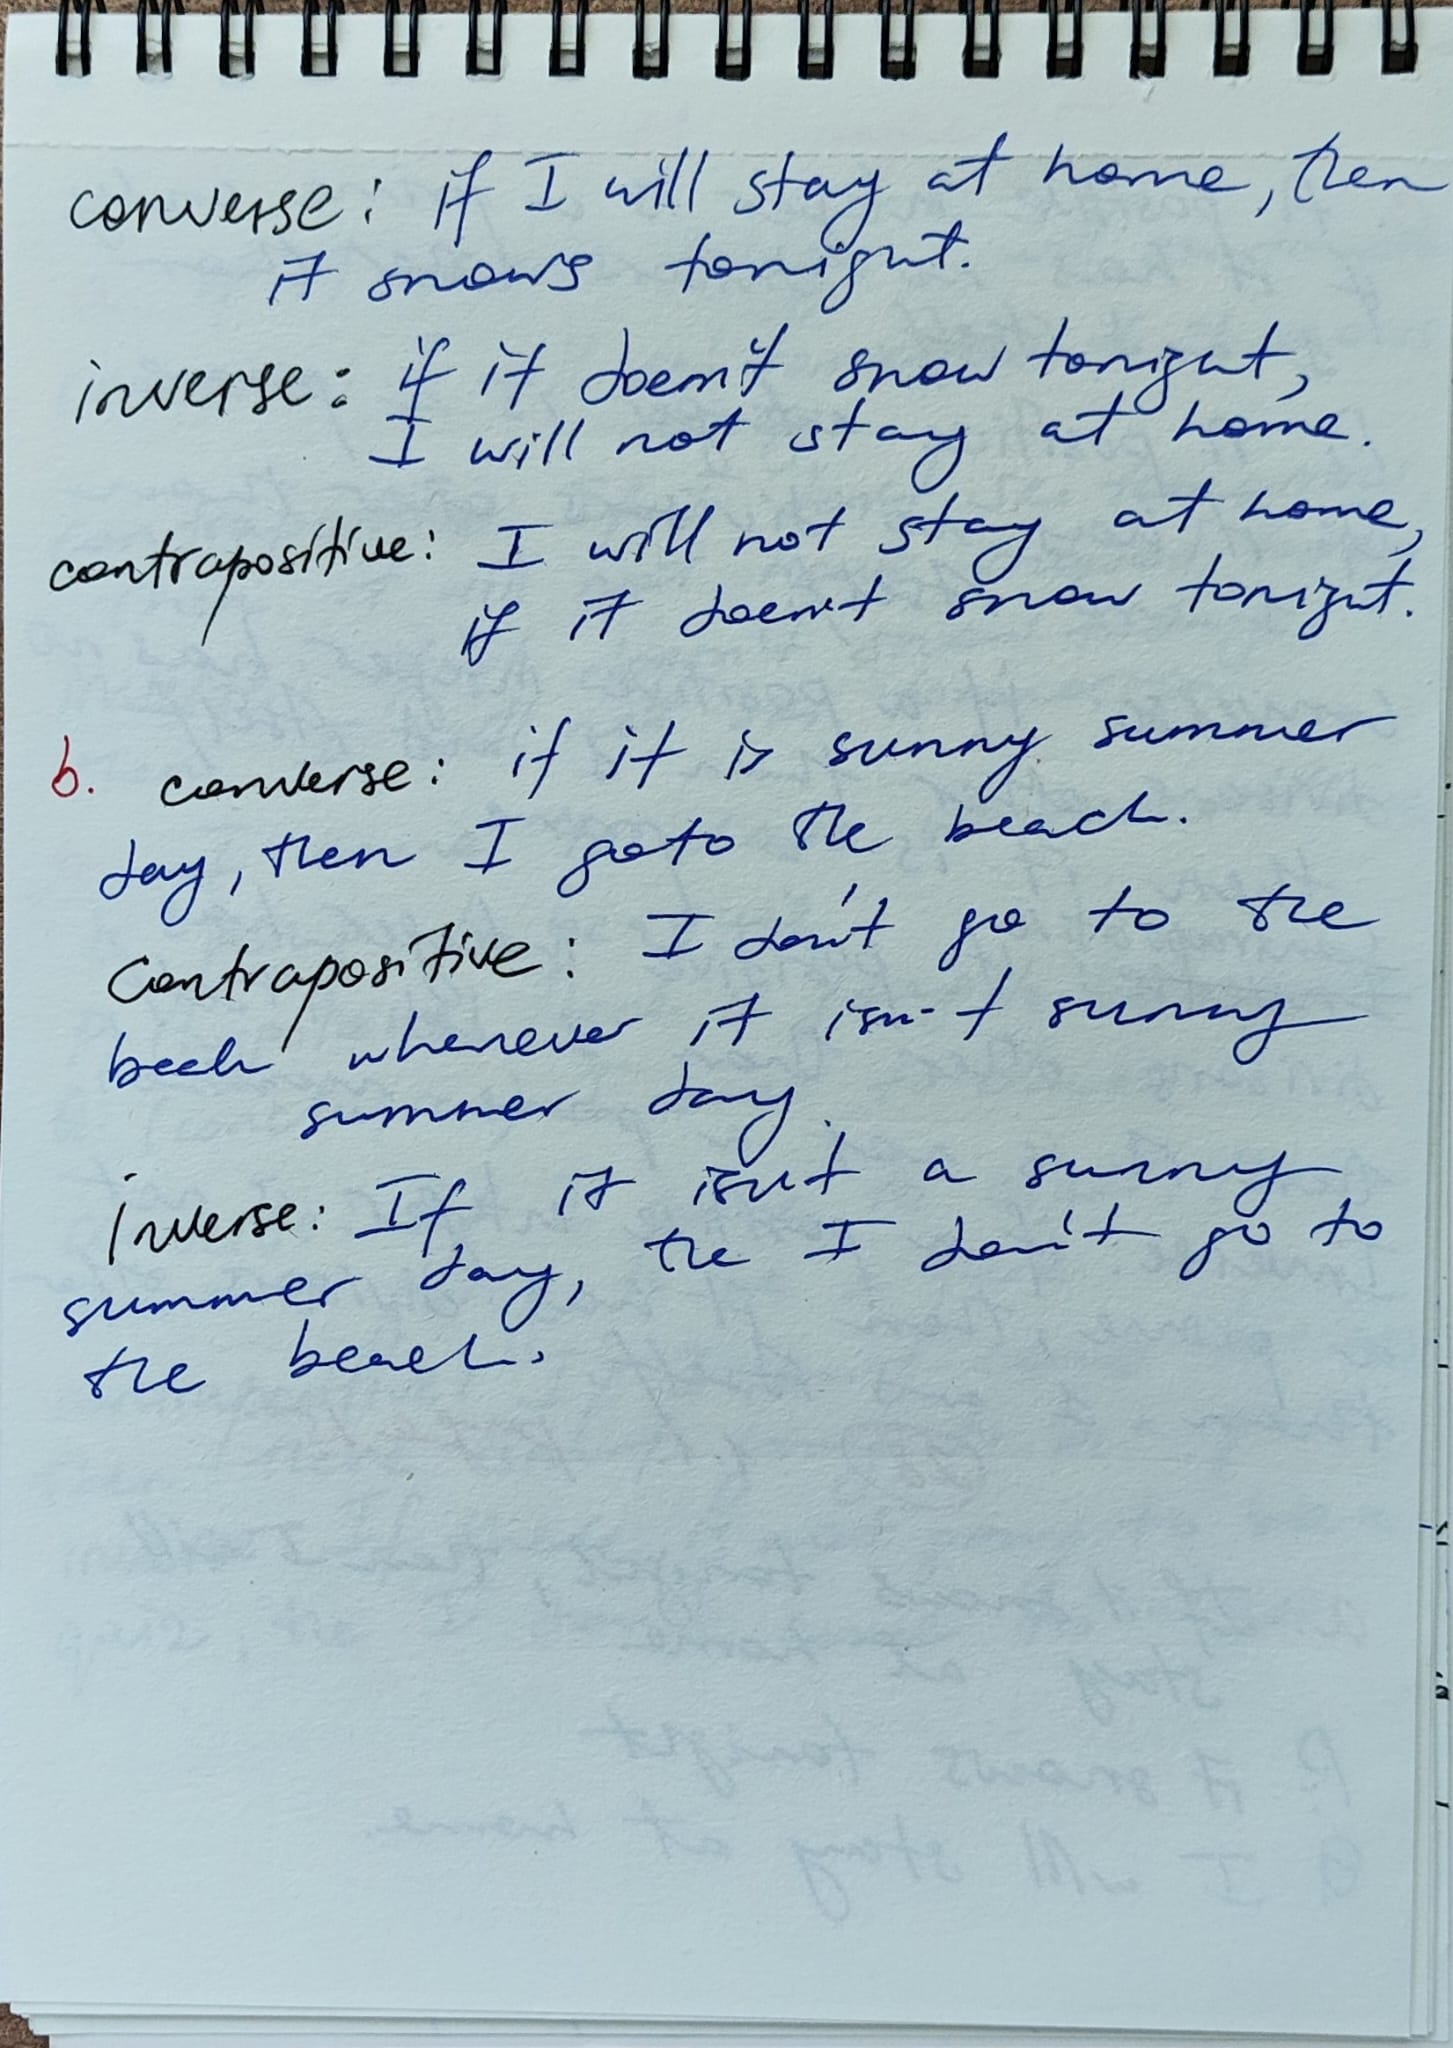 converse: if I will stay at home, then
it snows tonight.
inverse: if it doesn't snow tonight,
I will not stay at home.
contrapositive: I will not stay at home,
if it doesn't snow tonight.
b. converse: if it is sunny summer
day, then I go to the beach.
Contrapositive: I don't go to the
beeh whenever it isn't sunny
summer day.
inverse: If it isn't a sunny
summer day, the I don't go to
the beach.